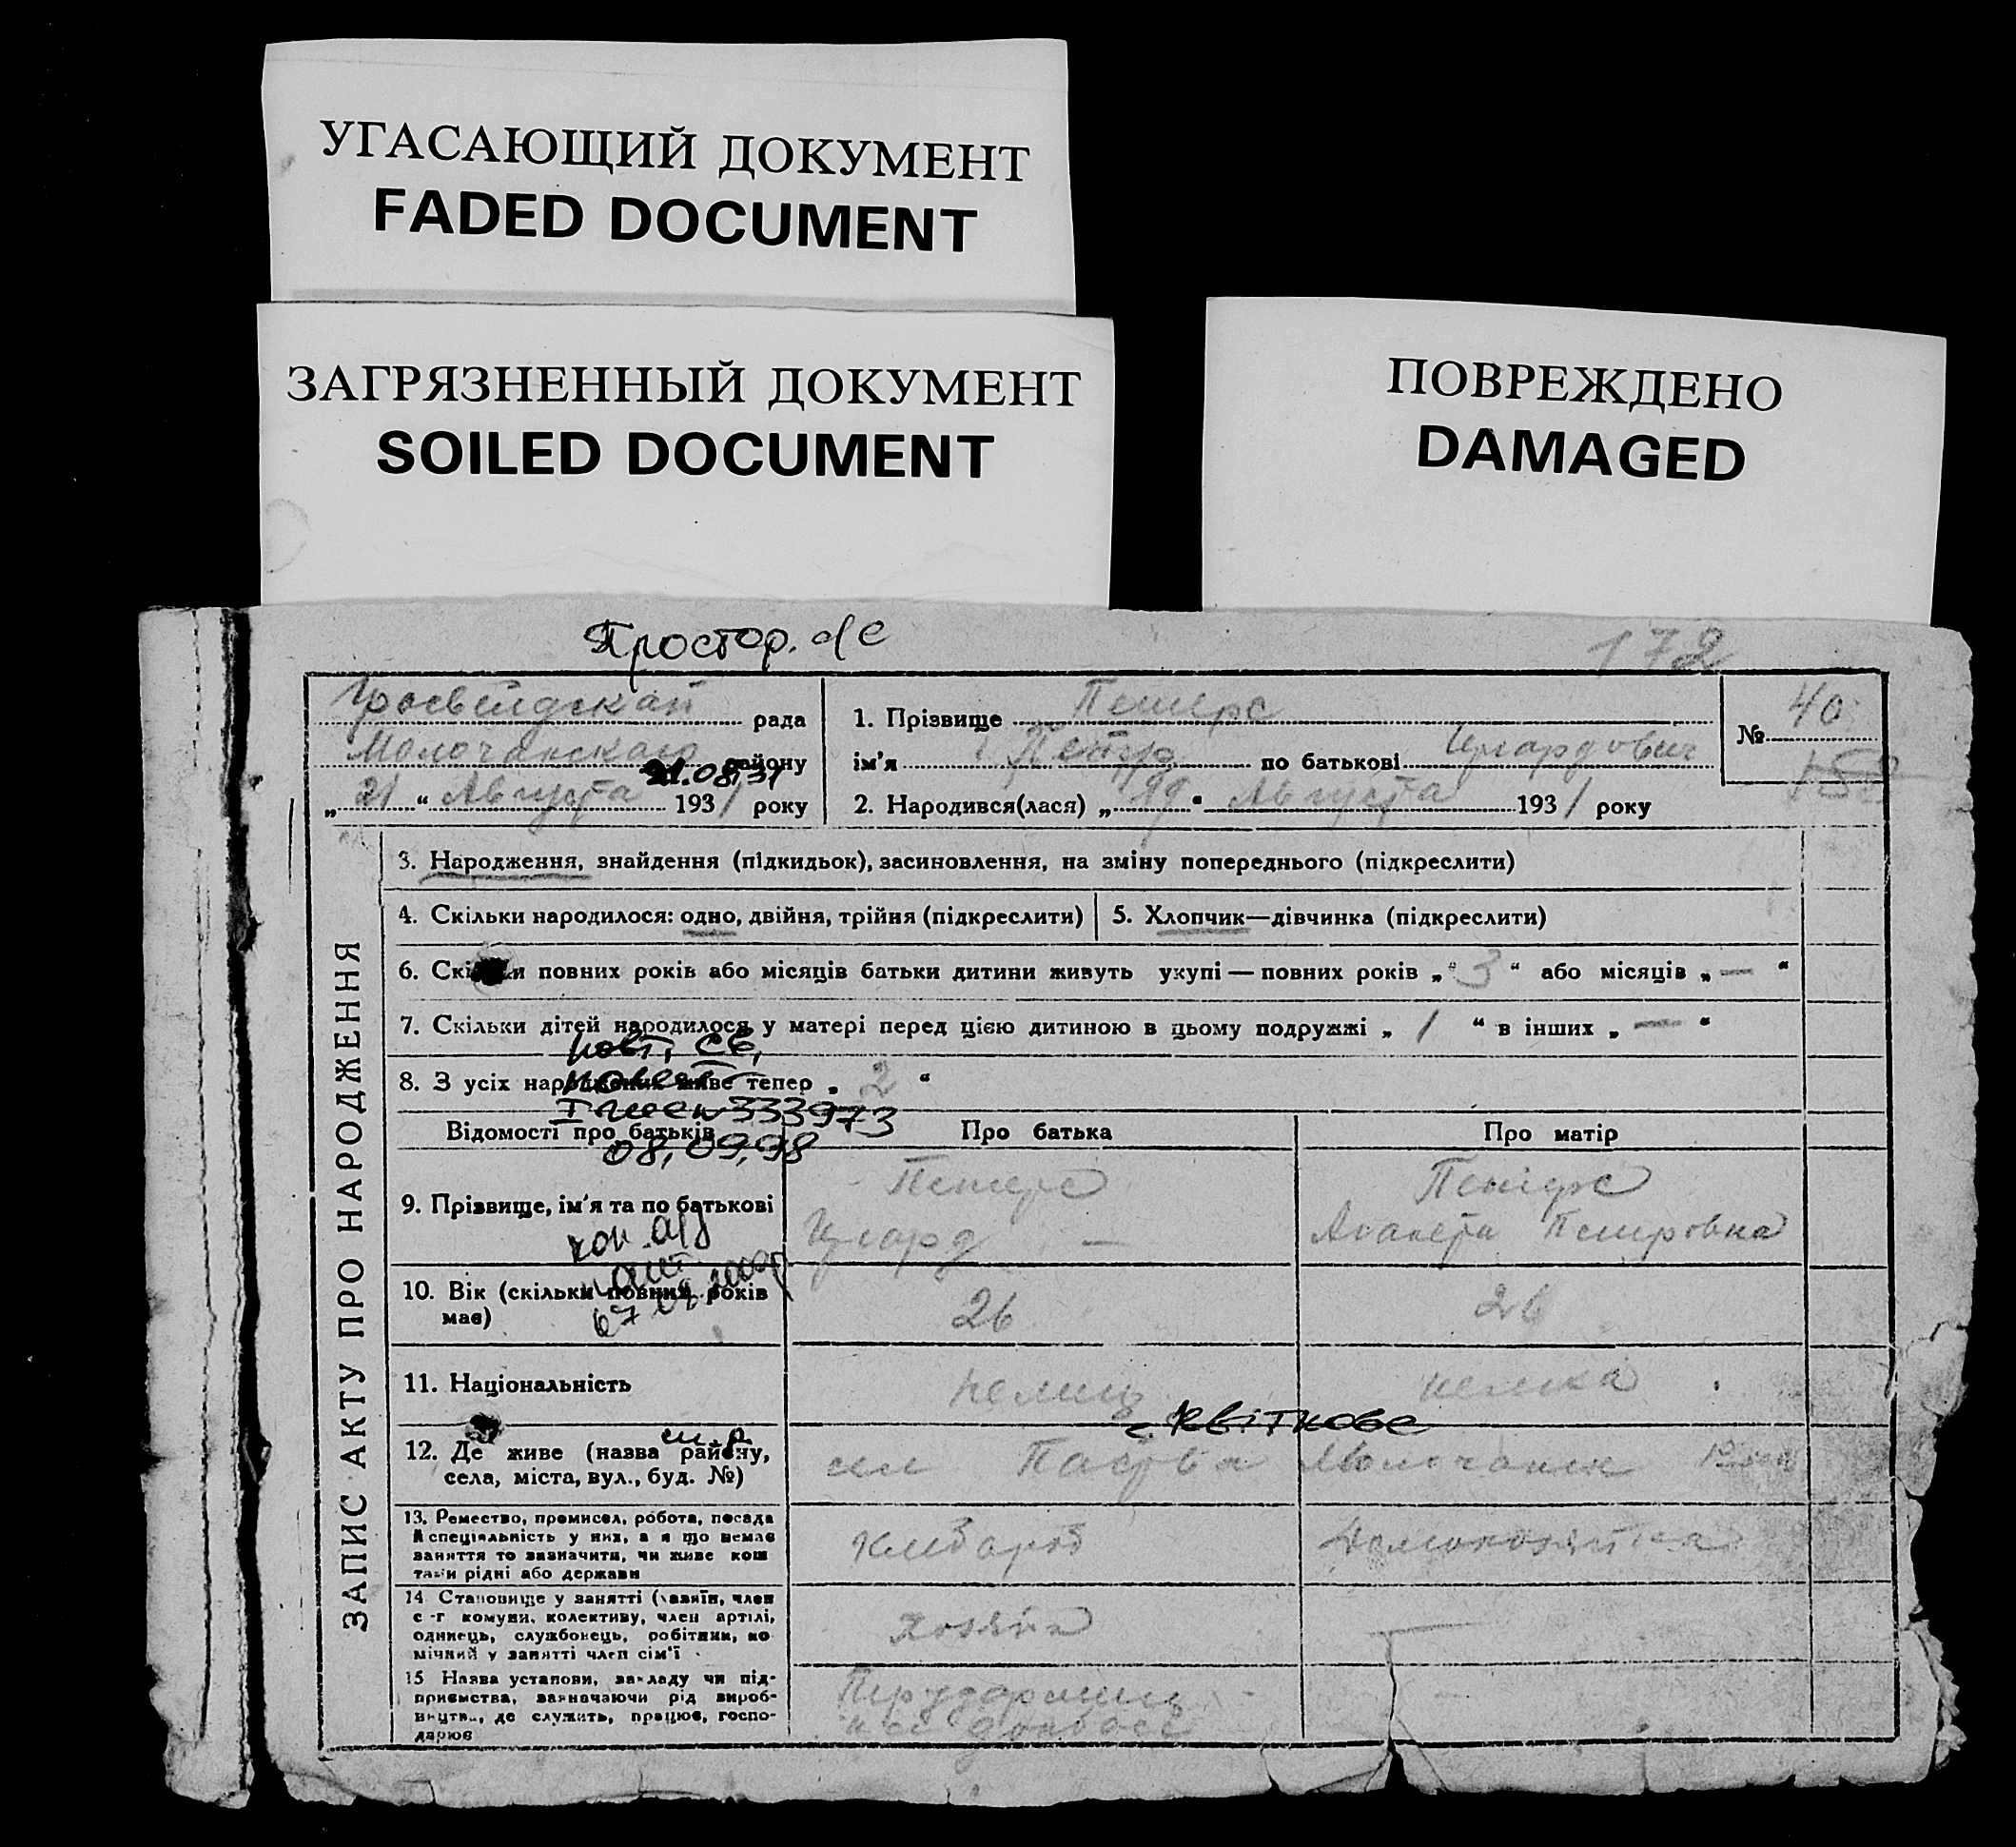 УГАСАЮЩИЙ ДОКУМЕНТ
FADED DOCUMENT
ЗАГРЯЗНЕННЫЙ ДОКУМЕНТ
SOILED DOCUMENT
ПОВРЕЖДЕНО
DAMAGED
Простор. с/с
172
рада
Молочанского району
21.08.31
„ 21 “ Августа 1931 року
1. Прізвище Петерс
ім'я Петр по батькові
2. Народився(лася) „ “ Августа 1931 року
№ 40
ЗАПИС АКТУ ПРО НАРОДЖЕННЯ
3. Народження, знайдення (підкидьок), засиновлення, на зміну попереднього (підкреслити)
4. Скільки народилося: одно, двійня, трійня (підкреслити)
5. Хлопчик—дівчинка (підкреслити)
6. Скільки повних років або місяців батьки дитини живуть укупі — повних років „ 3 “ або місяців „ — “
7. Скільки дітей народилося у матері перед цією дитиною в цьому подружжі „ 1 “ в інших „ — “
повт. св.
8. З усіх народжених живе тепер „ 2 “
333973
08,09,98
Відомості про батьків
Про батька
Про матір
9. Прізвище, ім'я та по батькові
Петерс
—
Петерс
Аганета Петровна
10. Вік (скільки повних років має)
26
26
11. Національність
немец
немка
с. Квіткове
12. Де живе (назва району, села, міста, вул., буд. №)
Паства Молочанск
13. Ремество, промисел, робота, посада й спеціяльність у них, а я що немає заняття то зазначити, чи живе коштами рідні або держави
хлебороб
Домохозяйка
14 Становище у занятті (хазяїн, член с-г комуни, колективу, член артілі, одинець, службовець, робітник, помічний у занятті член сім'ї
хозяин
—
15 Назва установи, закладу чи підприємства, зазначаючи рід виробництва, де служить, працює, господарює